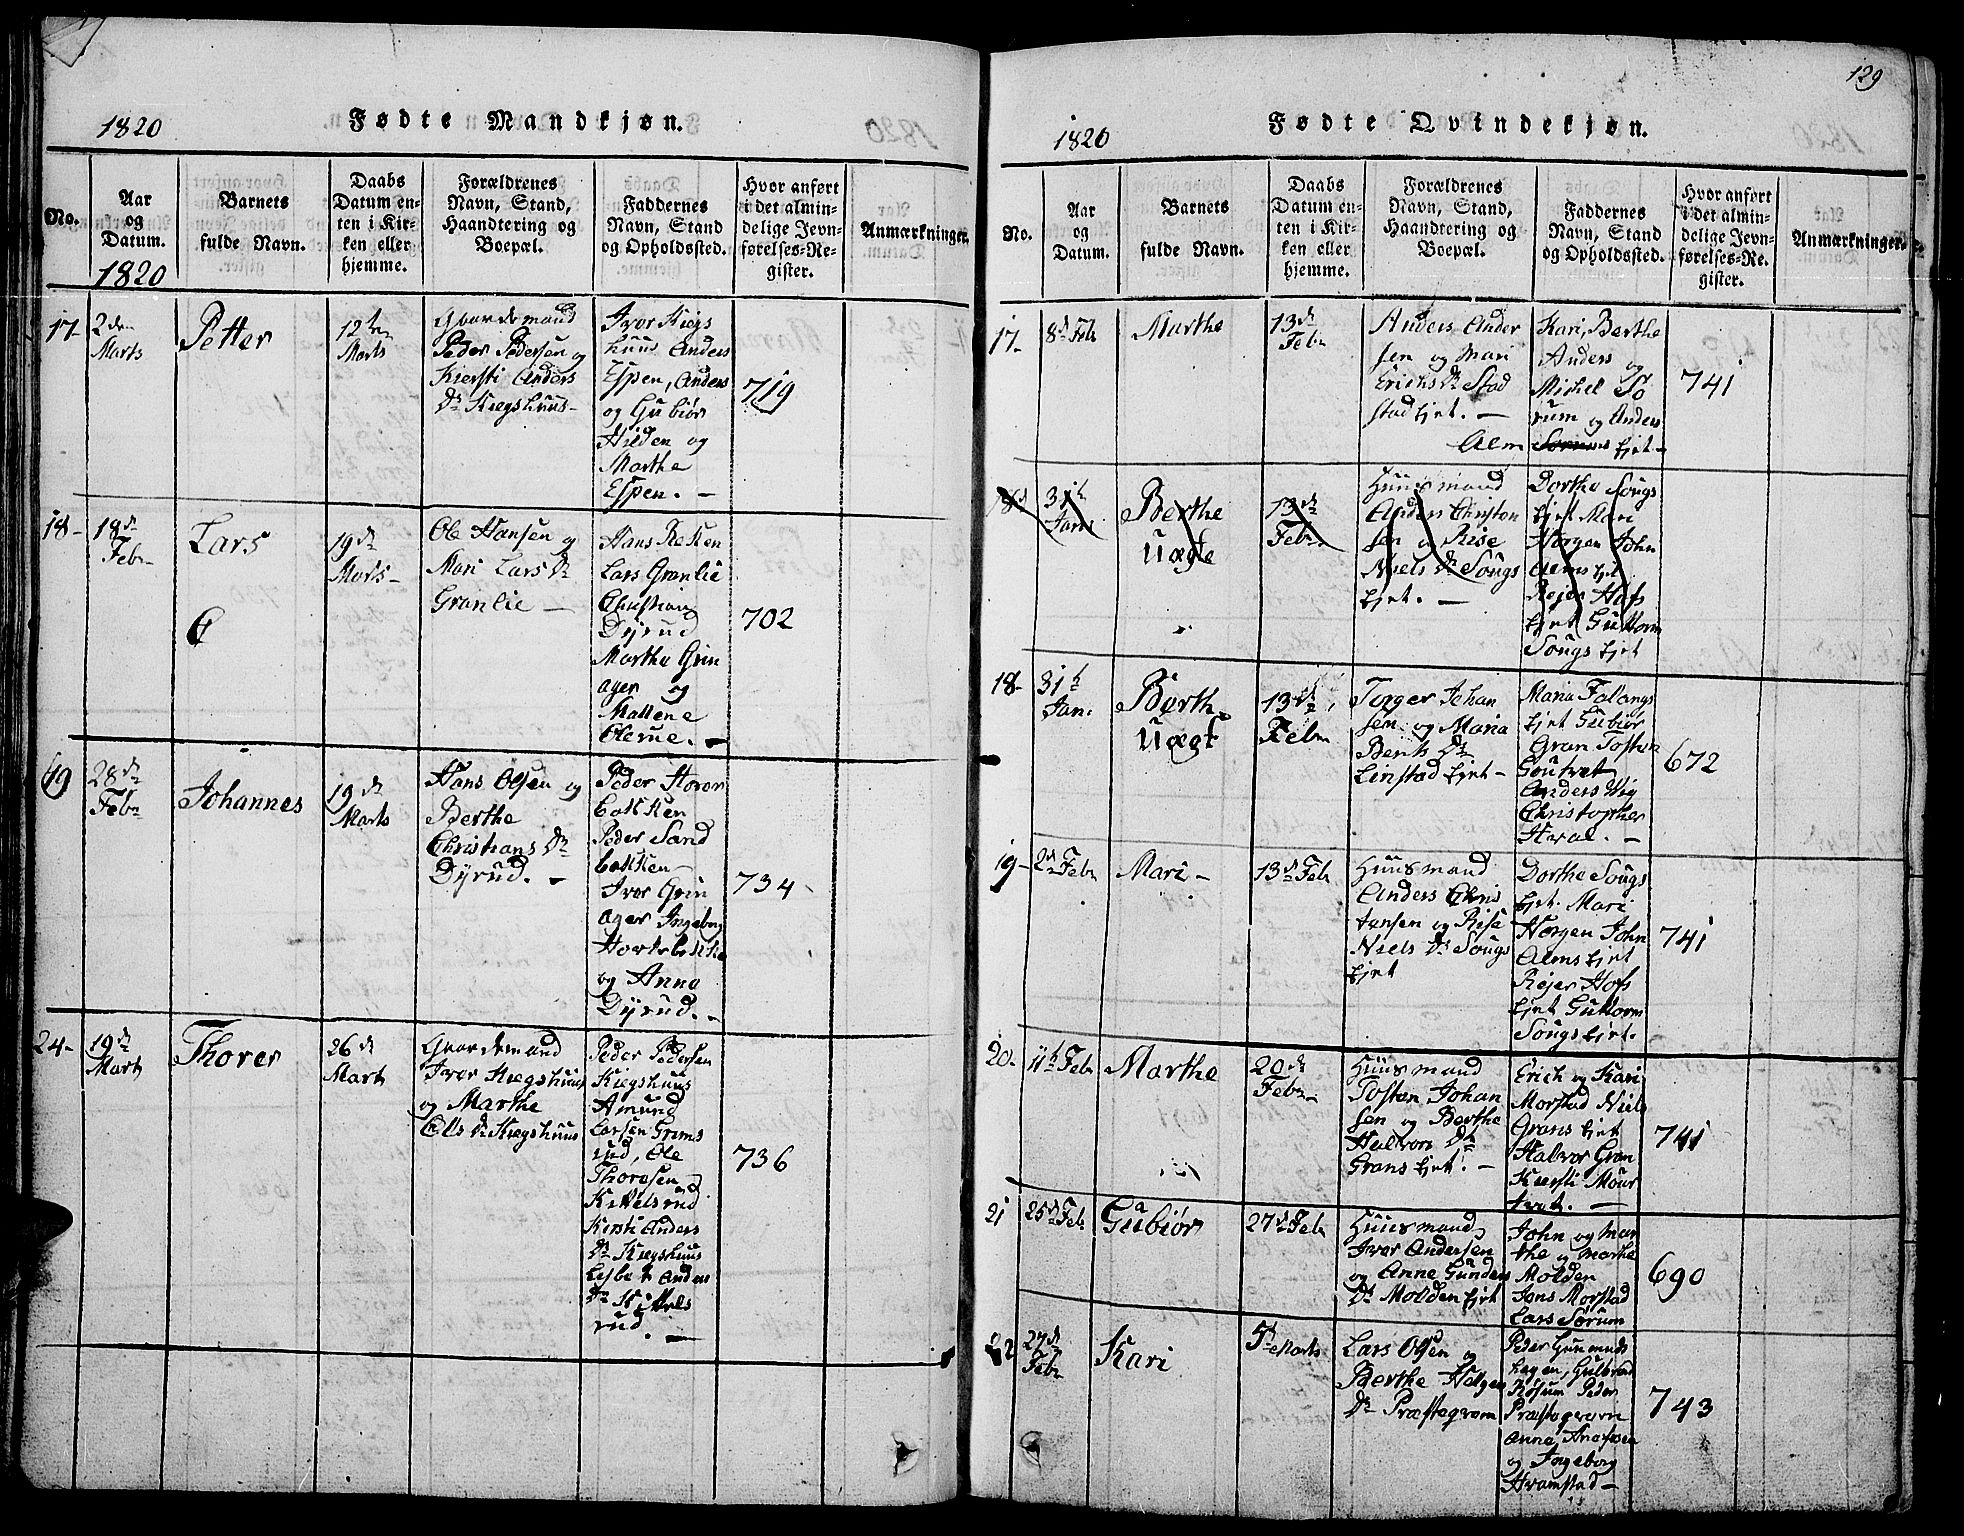 1820
Fødte Mandkjøn.
No.
Aar
og
Datum.
1820
Barnets
fulde Navn.
Daabs
Datum en-
ten i Kir-
ken eller
hjemme.
Forældrenes
Navn, Stand,
Haandtering og
Boepæl.
Faddernes
Navn, Stand
og Opholdssted.
Hvor anført
i det almin-
delige Jevn-
førelses-Re-
gister.
Anmærkninger.
17-
2den
Marts
Petter
12ten
Marts
Gaardemand
Peder Pedersen og
Kiersti Anders
Dr Kiegshuus-
Iver Kiegs
huus Anders
Espen, Anders
og Gubiør
Hilden og
Marthe
Espen. -
719
18-
18de
Febr
Lars
19de
Marts-
Ole Hansen og
Mari Lars Dr
Granlie -
Hans
Lars Granlie
Christian
Dyrud
Marthe Grin
ager og
Mallene
Olerue. -
702
19
28de
Febr
Johannes
19de
Marts
Hans Olsen og
Berthe
Christians Dr
Dyrud. -
Peder
bakken
Peder Sand
bakken
Iver Grin
ager Ingeborg
og Anna
Dyrud. -
734
24-
19de
Mart
Thorer
26de
Mart
Gaardemand
Iver Kiegshuus
og Marthe
Ols Dr Kiegshuus
Peder Pedersen
Kiegshuus
Amund
Larsen Grims
rud, Ole
Thoresen
Kittelsrud
Kirsti Anders
Dr Kiegshuus
Lisbet Anders
Dr Kittels
rud. -
736
129
1820
Fødte Qvindekjøn.
No.
Aar
og
Datum.
Barnets
fulde Navn.
Daabs
Datum en-
ten i Kir-
ken eller
hjemme.
Forældrenes
Navn, Stand,
Haandtering og
Boepæl.
Faddernes
Navn, Stand
og Opholdssted.
Hvor anført
i det almin-
delige Jevn-
førelses-Re-
gister.
Anmærkninger.
17-
8de Feb
Marthe
13de
Febr
Anders Ander
sen og Mari
Erichs Dr Stad
stad Ejet. -
Kari, Berthe
Anders og
Michel Sö
rum og Anders
Alm Sørums Ejet-
741
18
31te
Jan
Berthe
Uægte
13de
Febr
Huusmand
Anders Christan
sen og Rise
Niels Dr Sougs
Ejet. -
Dorthe Sougs
Ejet Mari
Horgen John
Alms Ejet
Rejer Hofs
Ejet Guttorm
Sougs Ejet
18-
31te
Jan.
Berth
Uægt
13de
Febr
Torger Johan
sen og Maria
Bent Dr
Linstad Ejet-
Maria Falangs
Ejet Gubiør
Gran Tosten
Anders Wig
Christopher
Haral. -
672
19-
2de Febr
Mari -
13de Feb
Huusmand
Anders Chris
tansen og Rise
Niels Dr Sougs
Ejet
Dorthe Sougs
Ejet. Mari
Horgen John
Alms Ejet
Rejer Hofs
Ejet Guttorm
Sougs Ejet.
741
20-
11te Feb
Marthe
20de
Febr
Huusmand
Tosten Johan
sen og Berthe
Halvors Dr
Grans Ejet. -
Erich og Kari
Morstad Niels
Grans Ejet
Halvor Gran
Kiersti Mour
741
21
25de Feb
Gubiør
27de Feb
Huusmand
Iver Andersen
og Anne Gunders
Dr Molden Ejet
John og Mar
the og Marthe
Molden
Jans Morstad
Lars Sørum
690
22
27de
Febr
Kari
5te Marts
Lars Olsen og
Berthe Helgen
Dr Præstegrom
Peder Gunmunds
hagen, Gulbrand
Røsum Peder
Præstegrom
Anne
og Ingeborg
Hramstad -
743